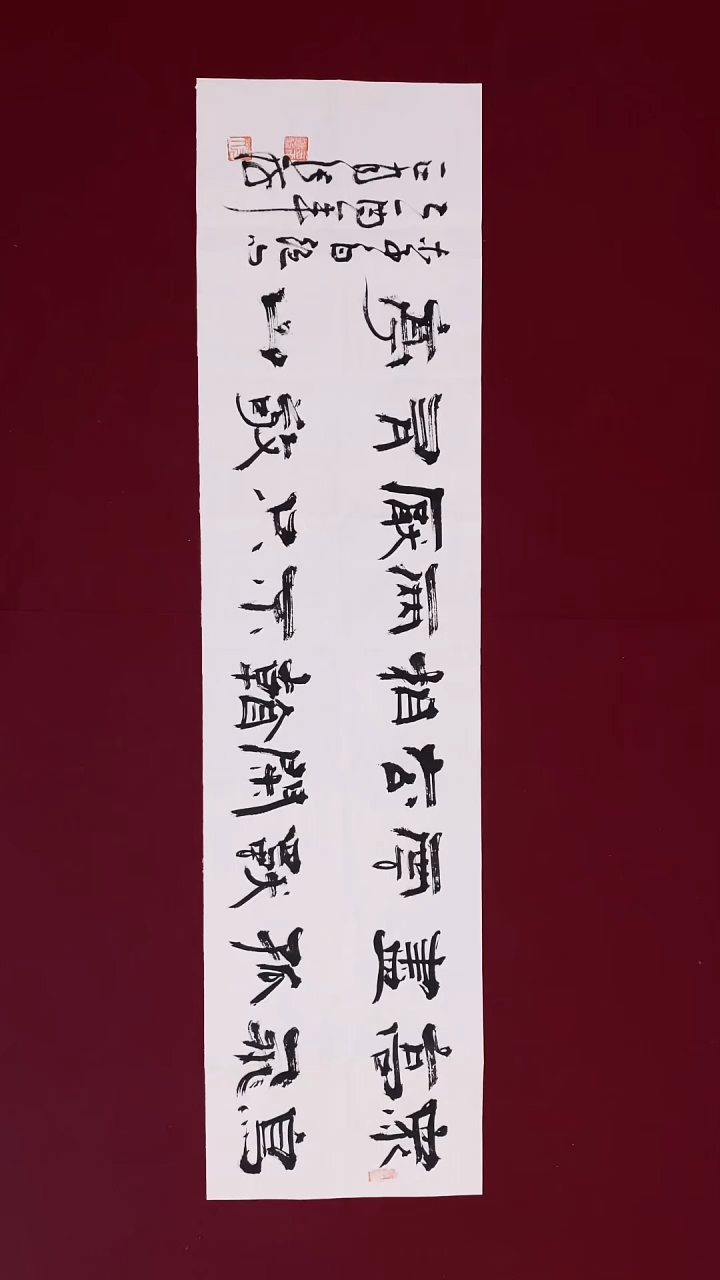 衆鳥
高飛
盡孤
雲獨
去閑
相看
兩不
厭只
有敬
亭山
李白
酉年